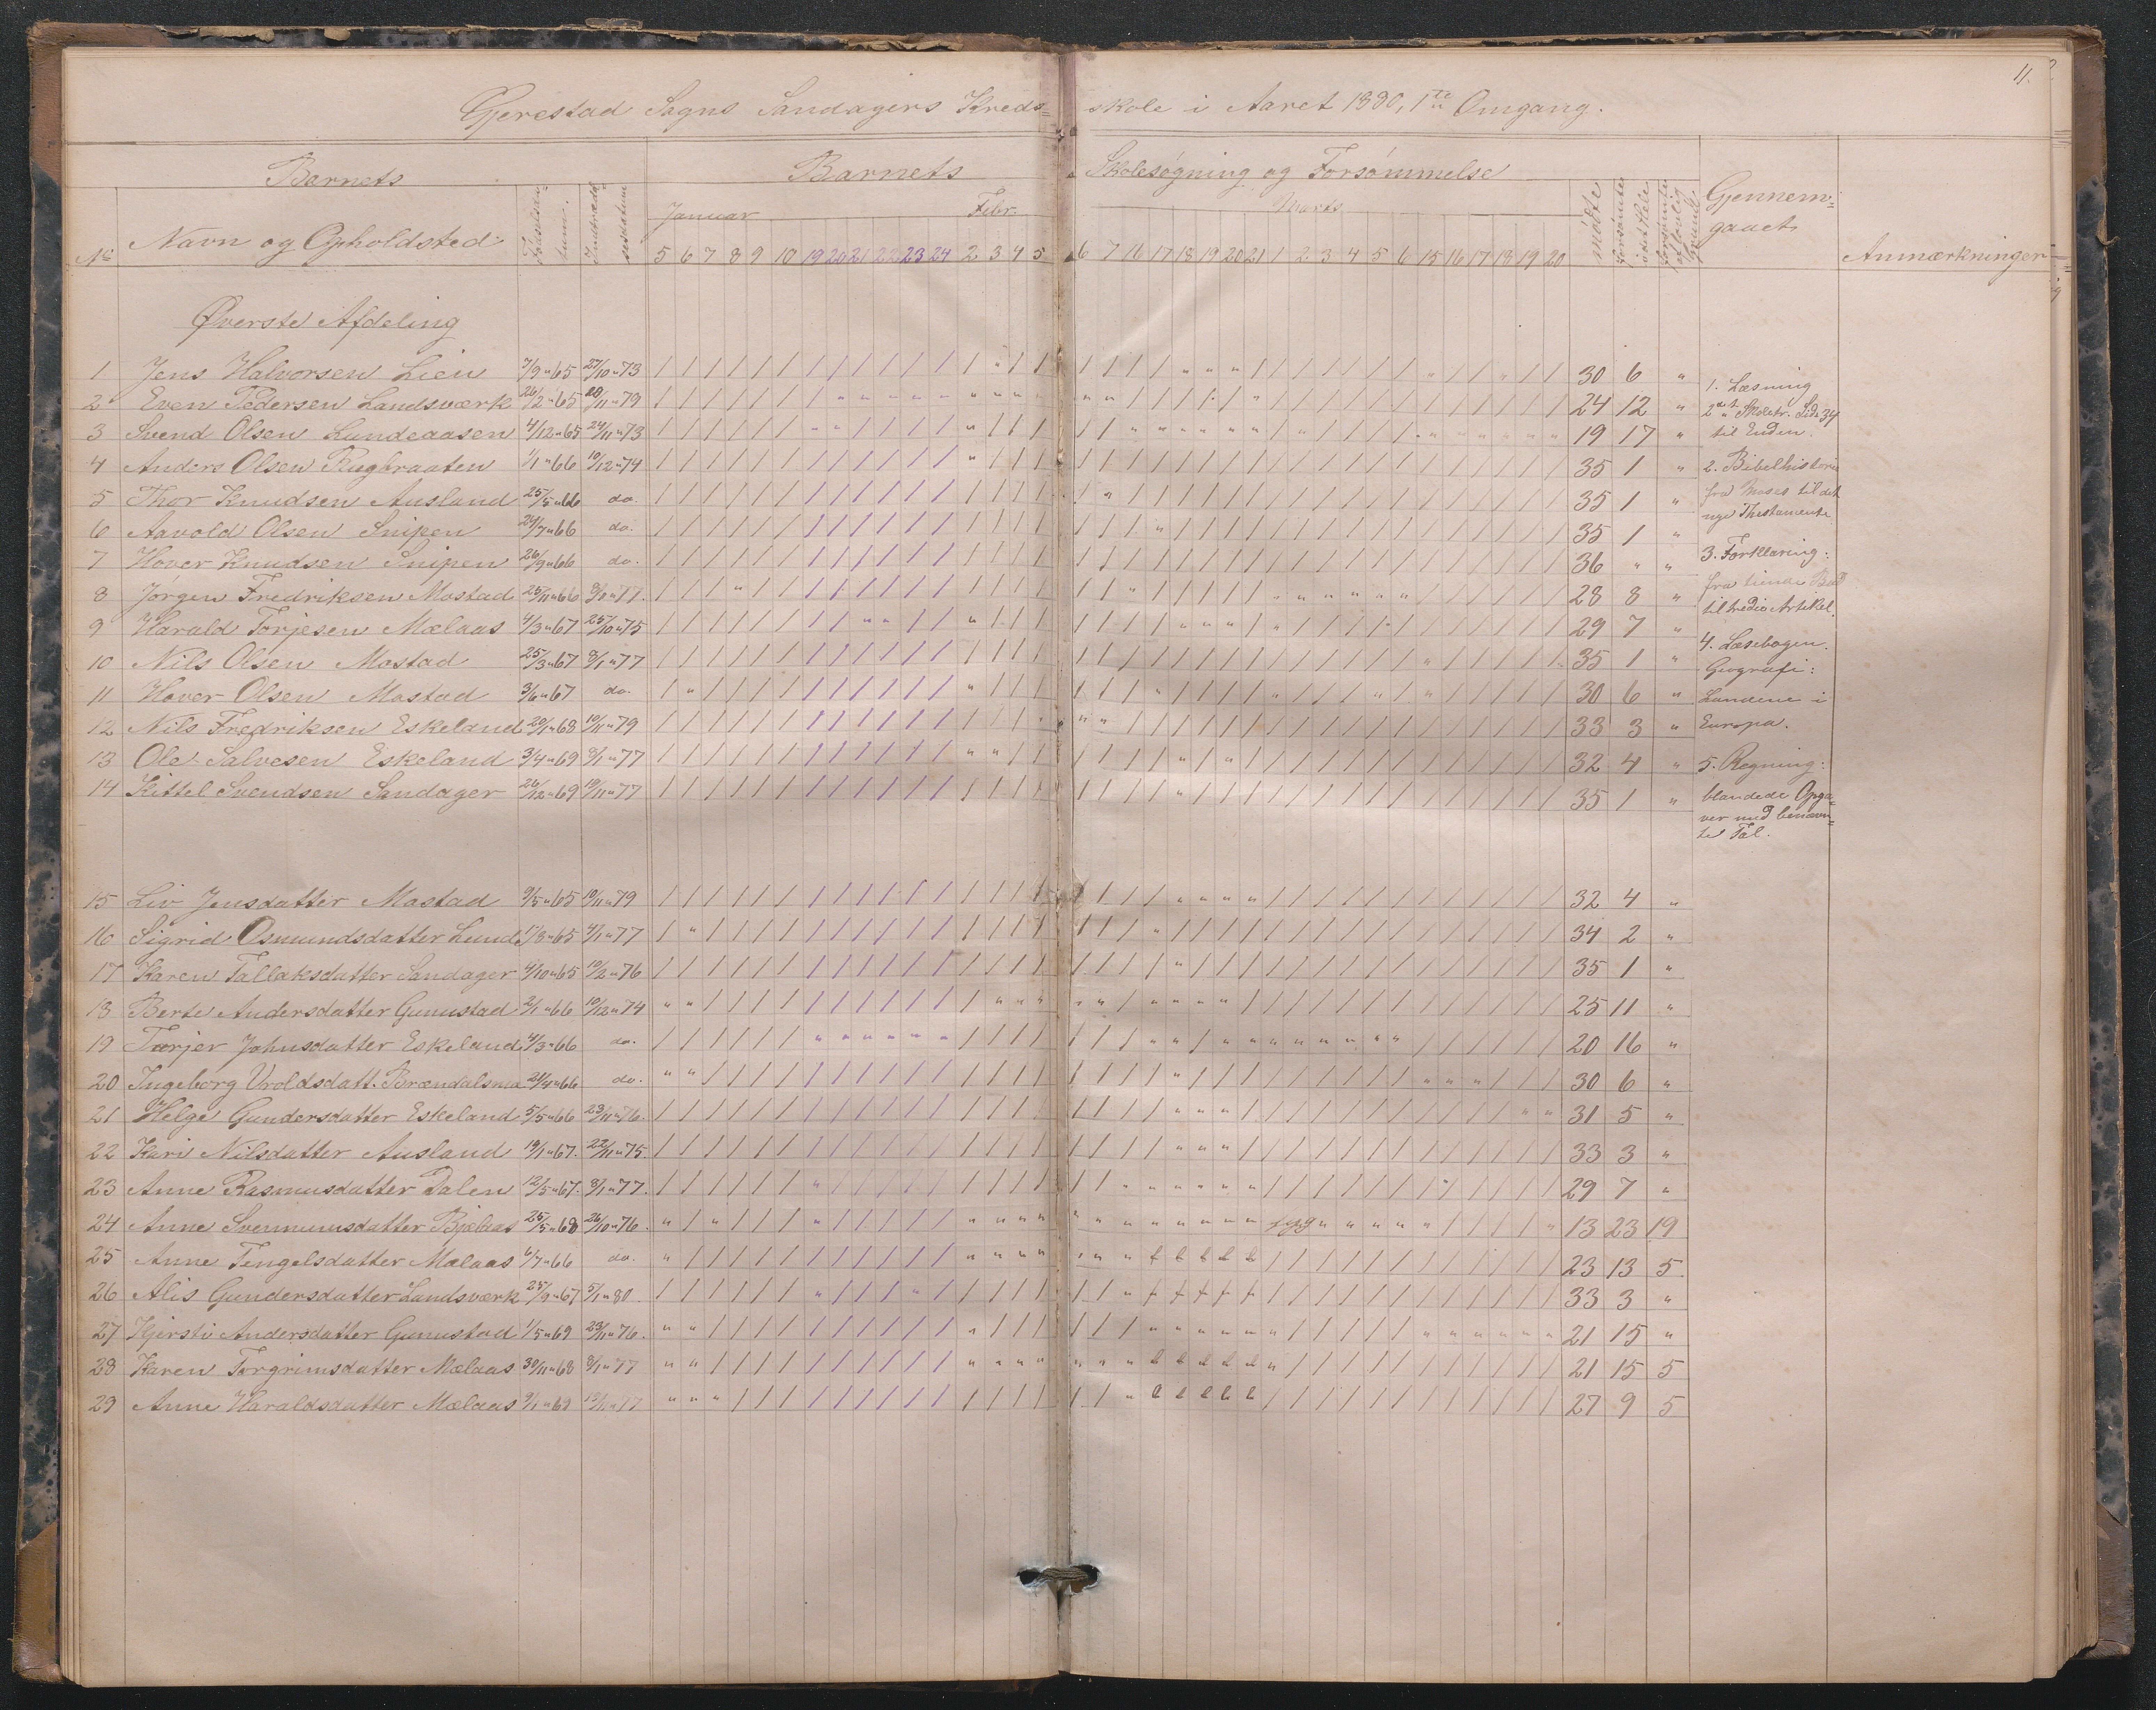 11.
Gjerestad Sogns Sandagers Kreds= skole i Aaret 1880, 1ste Omgang.
Barnets Barnets Skolesøgning og Forsømmelse
No Navn og Opholdsted: Fødselsda= tum. Indtrædel sesdatum Januar Febr. Marts mødte forsømte i det Hele forsømte af lovlig Grund Gjennem= gaaet Anmærkninger
5 6 7 8 9 10 19 20 21 22 23 24 2 3 4 5 6 7 16 17 18 19 20 21 1 2 3 4 5 6 15 16 17 18 19 20
Øverste Afdeling
1 Jens Halvorsen Lien 7/9 " 65 27/10 " 73 30 6 "
2 Even Pedersen Landsværk 26/2 " 65 20/11 " 79 24 12 "
3 Svend Olsen Lundeaasen 4/12 " 65 24/11 " 73 19 17 "
4 Anders Olsen Rugbraaten 1/1 " 66 10/12 " 74 35 1 "
5 Thor Knudsen Ausland 25/5 " 66 do. 35 1 "
6 Aavold Olsen Snipen 24/7 " 66 do. 35 1 "
7 Hover Knudsen Snipen 26/9 " 66 do. 36 " "
8 Jørgen Fredriksen Mostad 25/11 " 66 8/1 " 77. 28 8 "
9 Harald Torjesen Mælaas 4/3 " 67 25/10 " 75 29 7 "
10 Nils Olsen Mostad 25/3 " 67 8/1 " 77 35 1 "
11 Hover Olsen Mostad 3/6 " 67 do. 30 6 "
12 Nils Fredriksen Eskeland 20/1 " 68 10/11 " 79 33 3 "
13 Ole Salvesen Eskeland 3/4 " 69 8/1 " 77 32 4 "
14 Kittel Svendsen Sandager 26/12 " 69 19/11 " 77 35 1 "
1. Læsning
2det Skoletr. Side 34
til Enden.
2. Bibelhistorie
fra Moses til det
nye Thestamente.
3. Forklaring:
fra tiende Bud
til tredie Artikel.
4. Læsebogen.
Geografi:
Landene i
Europa.
5. Regning:
blandede Opga=
ver med benævn=
te Tal.
15 Liv Jensdatter Mostad 9/5 " 65 10/11 " 79 32 4 "
16 Sigrid Osmundsdatter Lund 17/8 " 65 9/1 " 77 34 2 "
17 Karen Tallaksdatter Sandager 4/10 " 65 10/2 " 76 35 1 "
18 Berte Andersdatter Gunustad 2/1 " 66 10/12 " 74 25 11 "
19 Torjer Johnsdatter Eskeland 4/3 " 66 do. 20 16 "
20 Ingeborg Vroldsdatt. Brændalsmo 24/4 " 66 do. 30 6 "
21 Helge Gundersdatter Eskeland 5/5 " 66 23/11 " 76. 31 5 "
22 Kari Nilsdatter Ausland 19/1 " 67. 22/11 " 75. 33 3 "
23 Anne Rasmusdatter Dalen 12/5 " 67. 8/1 " 77. 29 7 "
24 Anne Svenumsdatter Bjelaas 25/5 " 68 26/10 " 76. syg 13 23 19
25 Anne Tengelsdatter Mælaas 6/7 " 66 do. 23 13 5
26 Alis Gundersdatter Landsværk 25/9 " 67 5/1 " 80. 33 3 "
27 Kjersti Andersdatter Gunustad 1/5 " 69 23/11 " 76. 21 15 "
28 Karen Torgrimsdatter Mælaas 30/11 " 68 8/1 " 77 21 15 5
29 Anne Haraldsdatter Mælaas 9/1 " 69 19/11 " 77 27 9 5